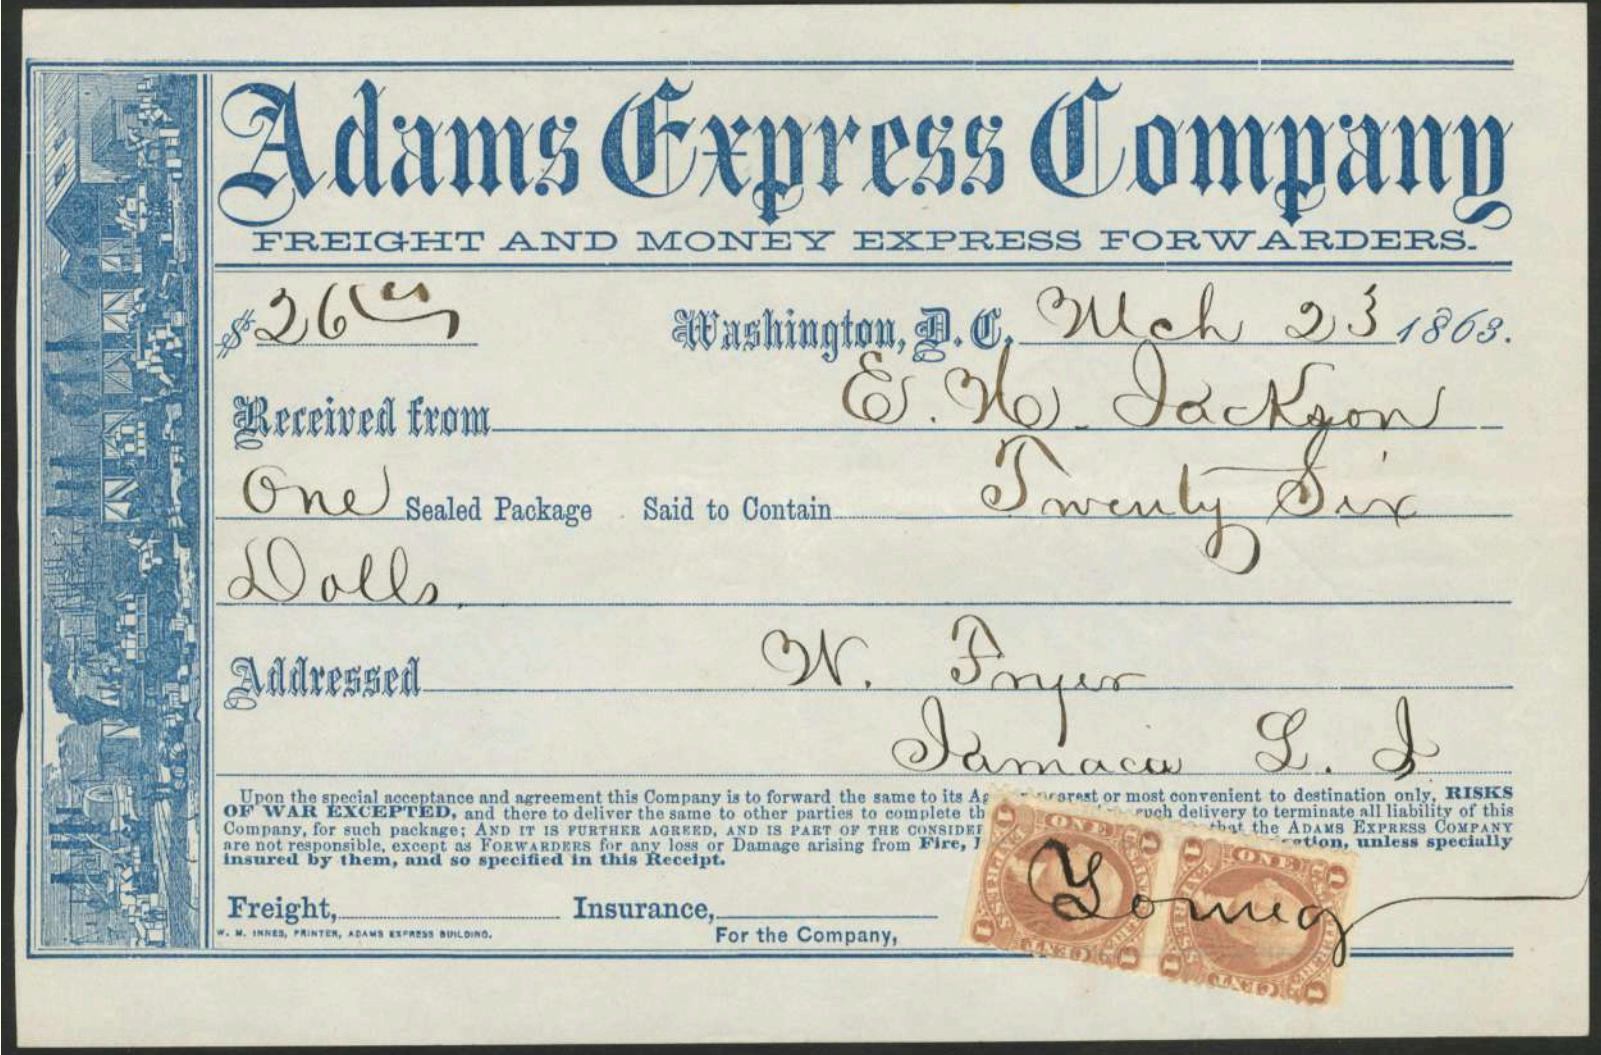 Adams Express Company
FREIGHT AND MONEY EXPRESS FORWARDERS.
$ 26 Washington, D. C. Mch 23 1863.
Received from E. W. Jackson
One Sealed Package Said to Contain Twenty Six
Dolls.
Addressed W. Fryer
Jamaica L. I
Upon the special acceptance and agreement this Company is to forward the same to its nearest or most convenient to destination only, RISKS
OF WAR EXCEPTED, and there to deliver the same to other parties to complete such delivery to terminate all liability of this
Company, for such package; AND IT IS FURTHER AGREED, AND IS PART OF THE that the ADAMS EXPRESS COMPANY
are not responsible, except as FORWARDERS for any loss or Damage arising from Fire, unless specially
insured by them, and so specified in this Receipt.
Freight, Insurance,
W. M. INNES, PRINTER, ADAMS EXPRESS BUILDING.
For the Company,
1 ONE 1
EXPRESS
1 CENT 1
1 ONE 1
EXPRESS
1 CENT 1